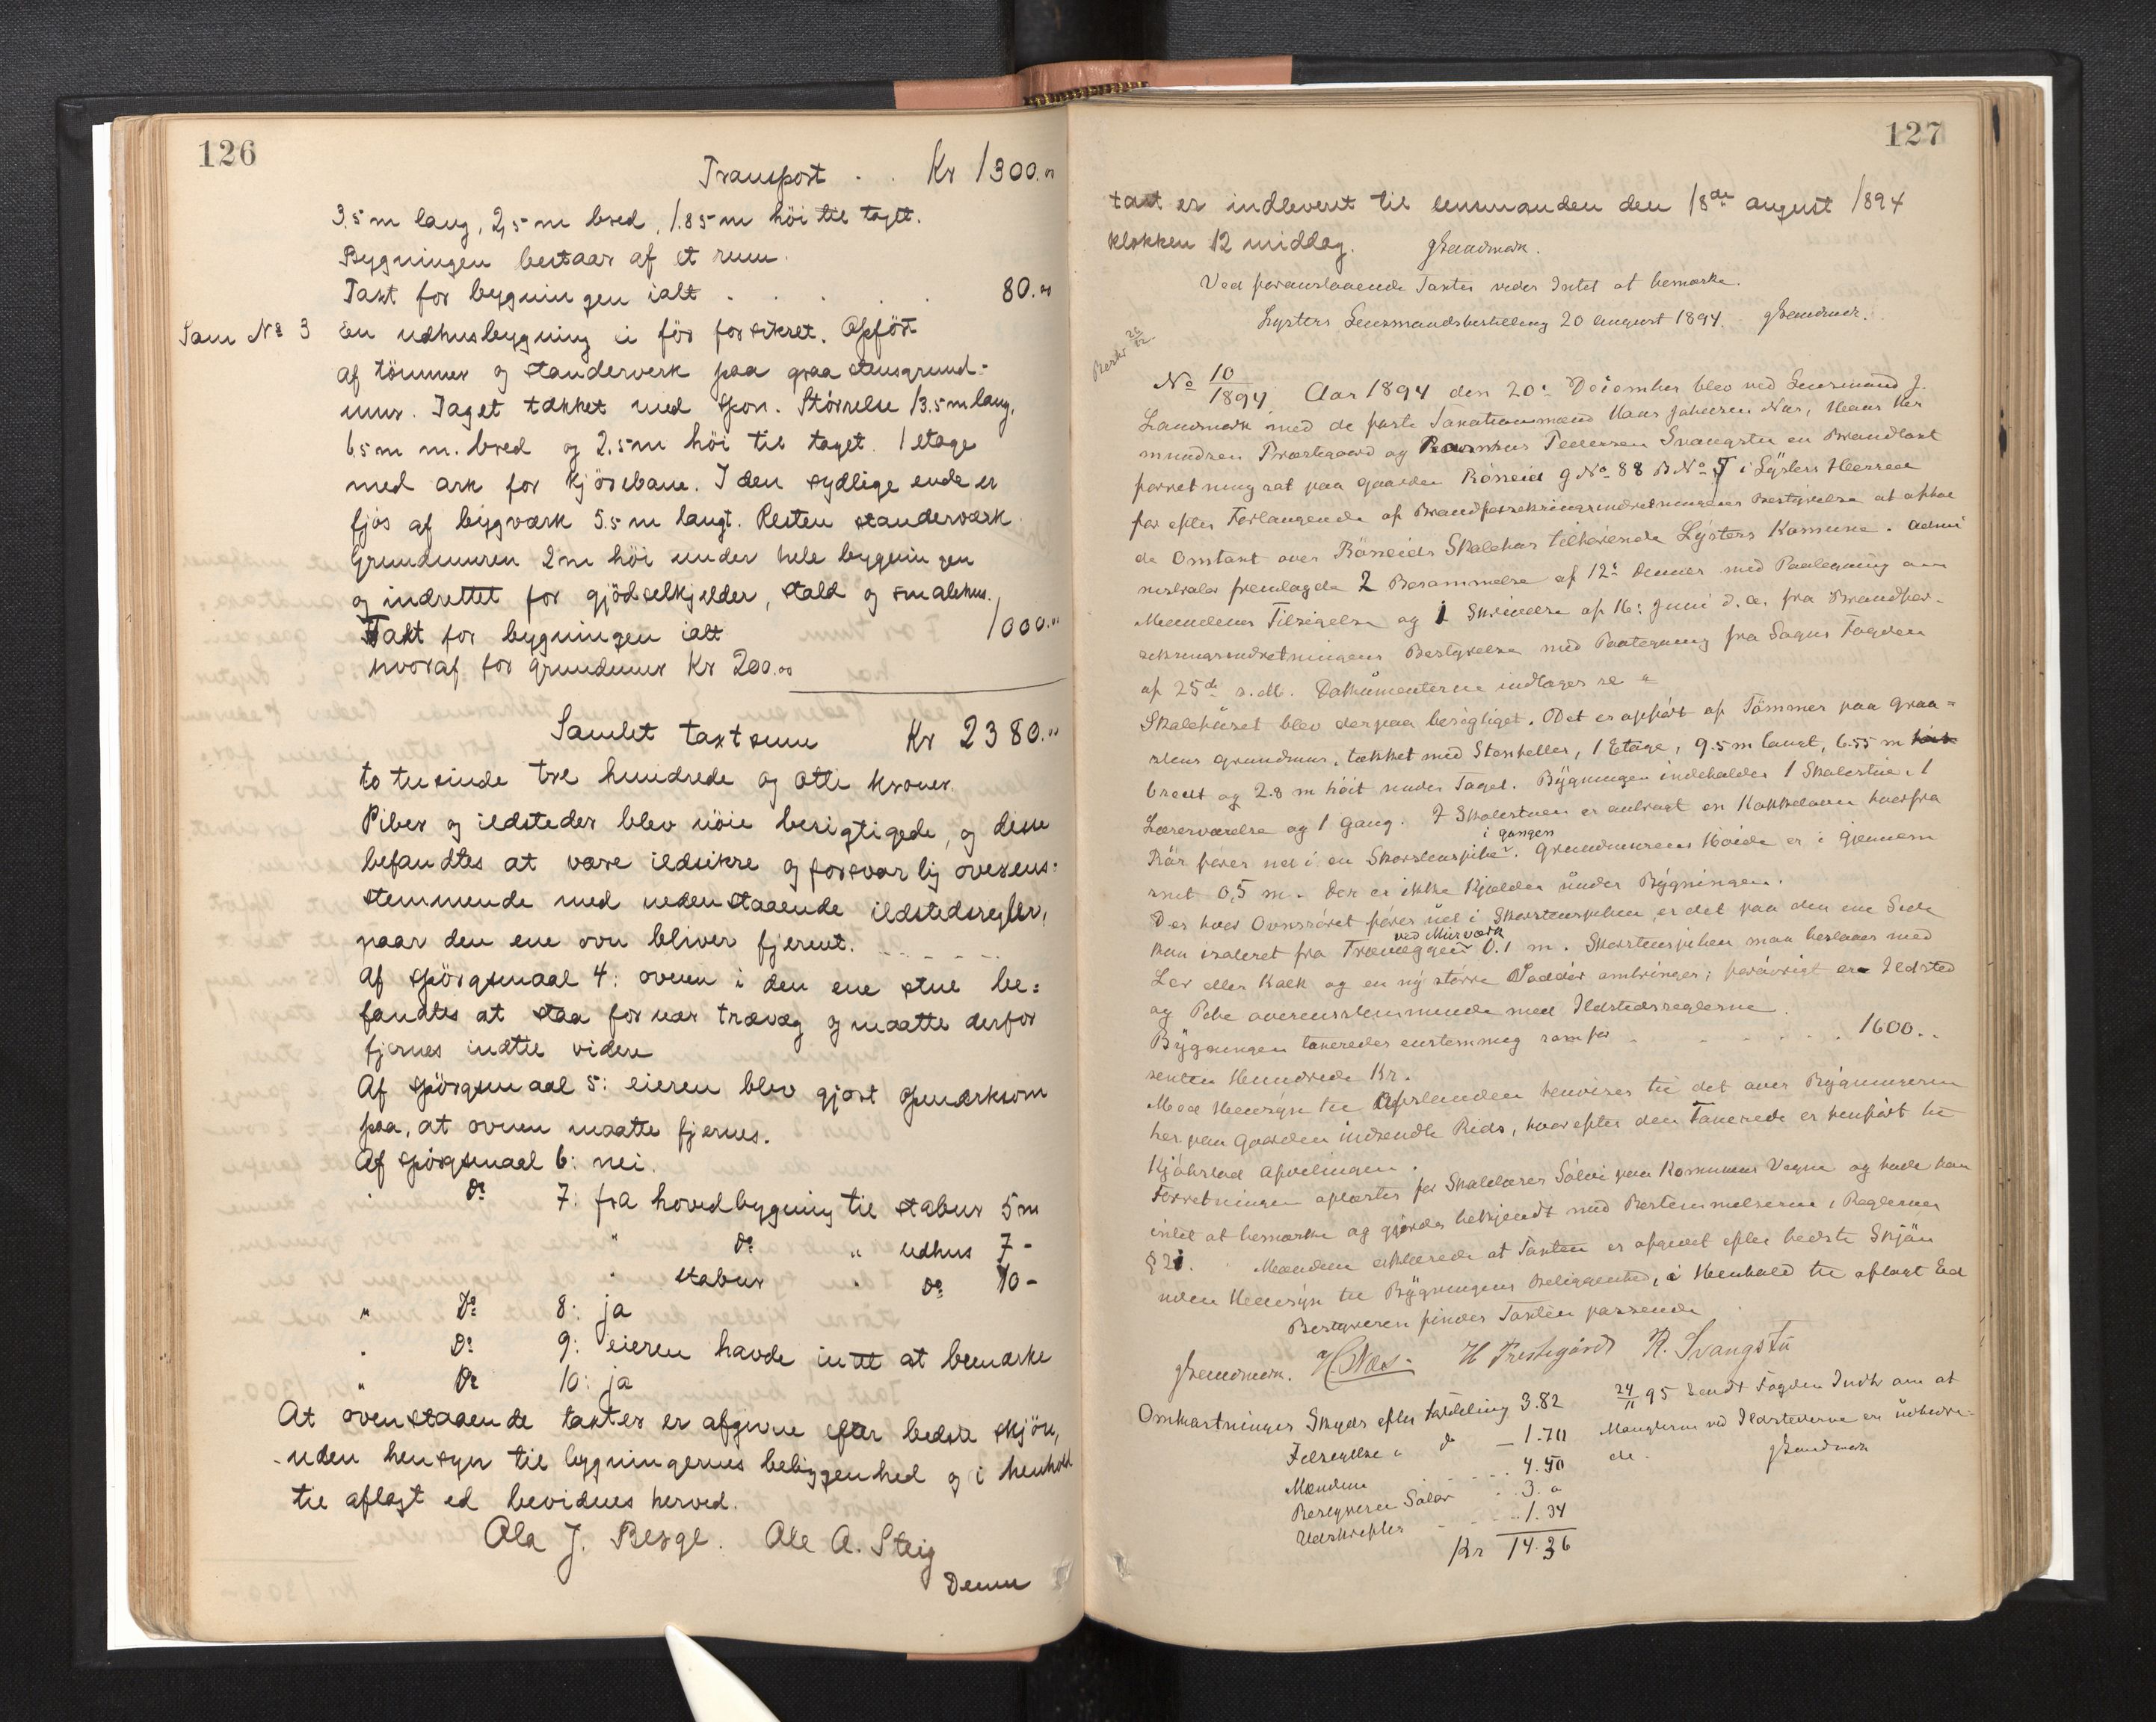 126
Transport . . Kr 1300.00
3,5 m lang, 2,5 m bred, 1.85 m höi til taget.
Bygningen bestaar af et rum.
Taxt for bygningen ialt . . . . . 80.00
Som No 3 En udhusbygning ei för forsikret. Opfört
af tömmer og standerverk paa graastensgrund-
mur. Taget tækket med spon. Störrelse 13.5 m lang,
6.5 m m. bred og 2.5 m höi til taget. 1 etage
med ark for kjörebane. I den sydlige ende er
fjös af bygværk 5.5 m langt. Resten standerværk.
Grundmuren 2 m höi under hele bygningen
og indrettet for gjödselkjelder, stald og smalehus.
Taxt for bygningen ialt 1000.00
hvoraf for grundmur Kr 200.00
Samlet taxtsum Kr 2380.00
to tusinde tre hundrede og otti kroner.
Piber og ildsteder blev nöie besigtigede, og disse
befandtes at være ildsikre og forsvarlig overens:
stemmende med nedenstaaende ildstedsregler,
naar den ene ovn bliver fjernet. - - - - -
Af spörgsmaal 4: ovnen i den ene stue be=
fandtes at staa for nær trævæg og maatte derfor
fjernes indtil videre
Af spörgsmaal 5: eieren blev gjort opmærksom
paa, at ovnen maatte fjernes.
Af spörgsmaal 6: nei.
" Do 7: fra hovedbygning til stabur 5 m
" Do " udhus 7 -
" stabur " Do 10 -
" Do 8: ja
" Do 9: eieren havde intet at bemærke
" Do 10: ja
At ovenstaaende taxter er afgivne efter bedste skjön,
uden hensyn til bygningernes beliggenhed og i henhold
til aflagt ed bevidnes herved.
Ola J. Berge. Ole A. Steig
Denne
127
taxt er indleveret til lensmanden den 18de august 1894
klokken 12 middag. GLandmark.
Ved foranstaaende Taxter vides Intet at bemærke.
Lysters Lensmandsbestilling 20 august 1894. GLandmark.
No 10/1894. Aar 1894 den 20: December blev ved Lensmand J.
Landmark med de faste Taxationsmænd Hans Johnsen Næs, Hans Her
mundsen Præstegaard og Rasmus Pedersen Svangstu en Brandtaxt
forretning sat paa gaarden Röneid g No 88 B No 5 i Lysters Herred
for efter Forlangende af Brandforsikringsindretningens Bestyrelse at afhol
de Omtaxt over Röneids Skolehus tilhörende Lysters Komune. Admi
nistrator fremlagde 2 Berammelse af 12te dennes med Paategning om
Mændenes Tilsigelse og 1 Skrivelse af 16: Juni d.a. fra Brandfor-
sikringsindretningens Bestyrelse med Paategning fra Sogns Fogderi
af 25de s.M. Dokumenterne indtages se "
Skolehuset blev derpaa besigtiget. Det er opfört af Tömmer paa graa=
stens grundmur, tækket med Stenheller, 1 Etage, 9.5 m langt, 6.55 m
bredt og 2.8 m höit under Taget. Bygningen indeholder 1 Skolestue, 1
Lærerværelse og 1 Gang. I Skolestuen er anbragt en Kakkelovn hvorfra
Rör föres ud i en Skorstenspibe i gangen. Grundmurens Höide er i Gjennem
snit 0,5 m. Der er ikke Kjælder under Bygningen.
Der hvor Ovnsröret föres ud i Skorstenspiben er det paa den ene Side
kun isoleret fra Trævæggen ved Murværk 0.1 m. Skorstenspiben maa beslaaes med
Ler eller Kalk og en ny större Soddör anbringes; forövrigt er Ildsted
og Pibe overensstemmende med Ildstedsreglerne.
Bygningen taxeredes enstemmig som för . . . . . 1600. .
sexten Hundrede Kr.
Med Hensyn til Afstanden henvises til det over Bygningerne
her paa Gaarden indsendte Rids, hvorefter den Taxerede er henfört til
Kjöbstad Afdelingen.
Forretningen oplæstes for Skolelærer Sölvi paa Komunens Vegne og havde han
intet at bemærke og gjordes bekjendt med Bestemmelserne i Reglernes
§ 21. Mændene erklærede at Taxten er afgivet efter bedste Skjön
uden Hensyn til Bygningens Beliggenhed, i Henhold til aflagt Ed
Bestyreren finder Taxten passende
GLandmark. H. Næs. H Prestegård R. Svangstu
Omkostninger Skyds efter fordeling 3.82
Tilsigelse " do - 1.70
Mændene 4.50
Bestyreren Salær . . 3. "
Udskrifter - - - - 1.34
Kr 14.36
24/11 95 Sendt Fogden Indb. om at
Manglerne ved Ildstederne er udbedre-
de. GLandmark